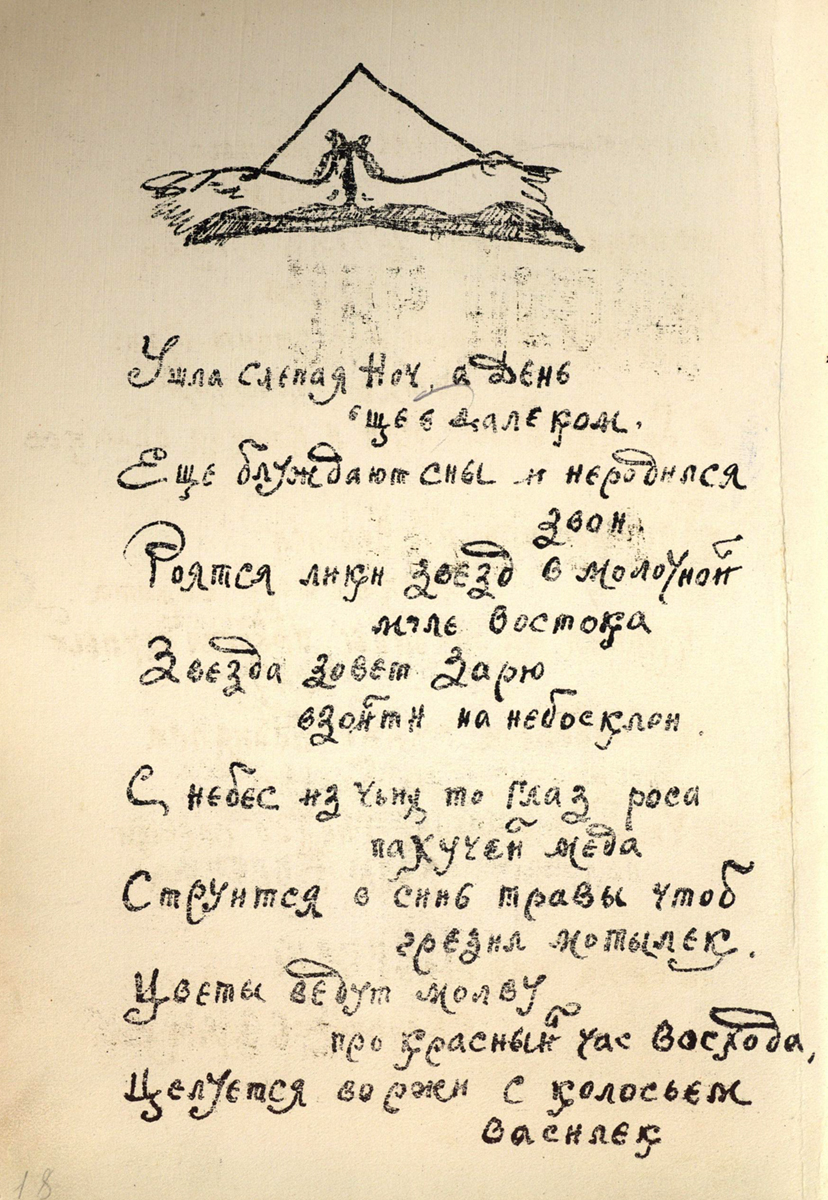 Ушла слепая Ноч, а День
еще в далеком.
Еще блуждают сны и неродился
звон.
Роятся лики звезд в молочной
мгле Востока
Звезда зовет Зарю
взойти на небосклон.
С небес из чьих то глаз роса
пахучей меда
Струится в синь травы чтоб
грезил мотылек.
Цветы ведут молву
про красный час Восхода,
Целуется во ржи с колосьем
Василек
18